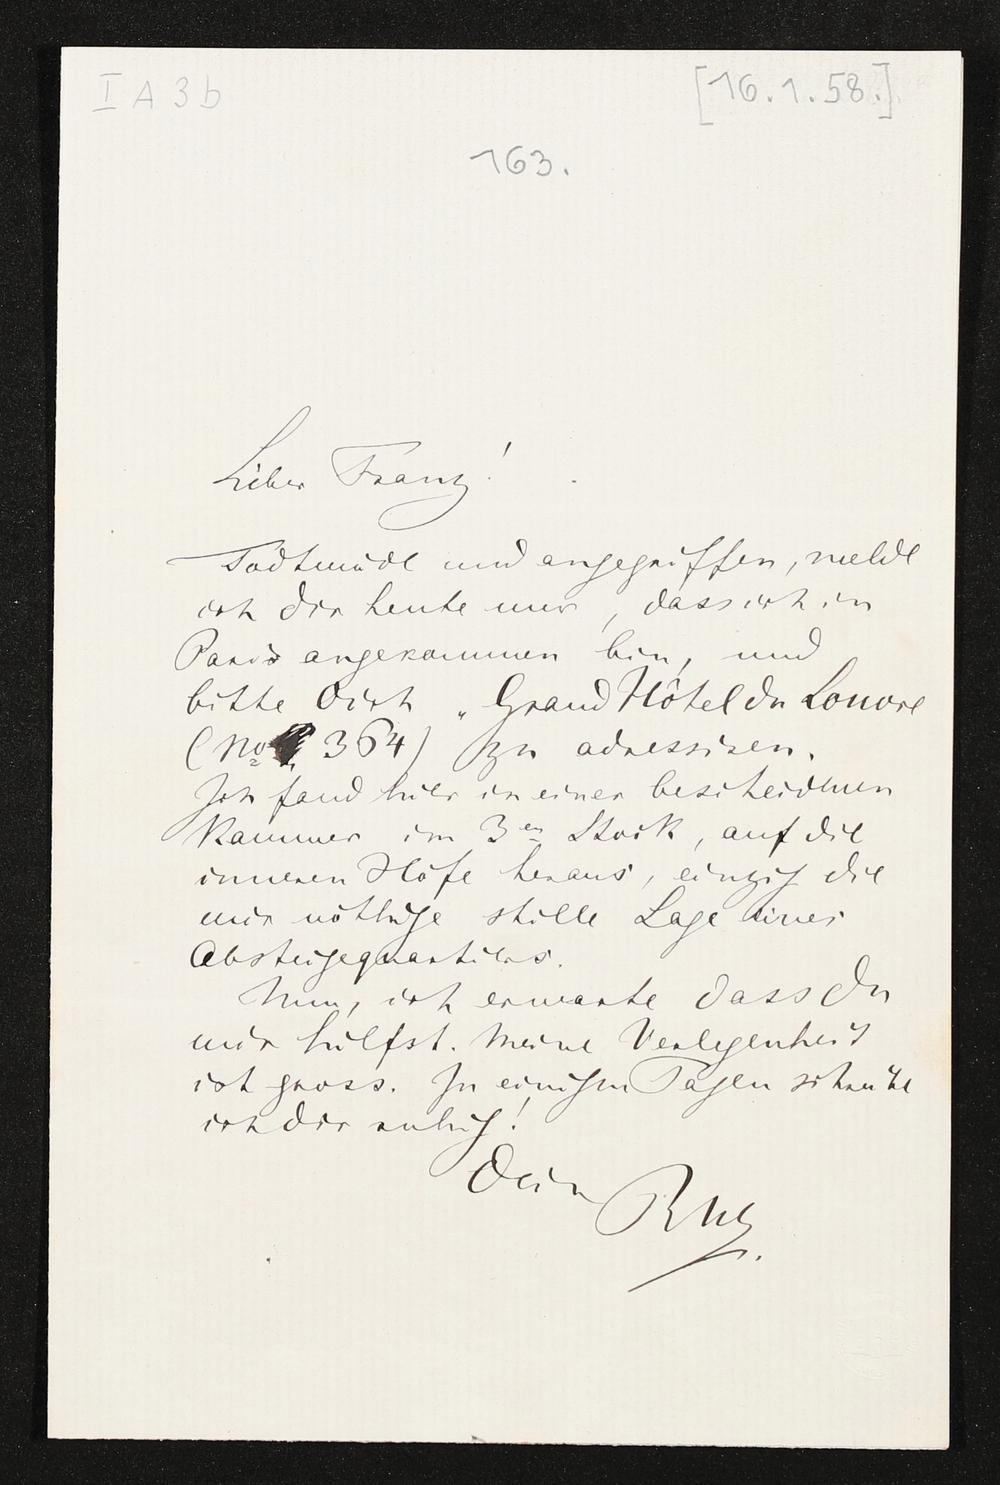 I A 3 b
[16.1.58.]
163.
Lieber Franz!
Todtmüde und angegriffen, melde
ich dir heute nur, dass ich in
Paris angekommen bin, und
bitte Dich „Grand Hôtel du Louvre
(No 364) zu adressiren.
Ich fand hier in einer bescheidenen
Kammer im 3en Stock, auf die
inneren Höfe heraus, einzig die
mir nöthige stille Lage eines
Absteigequartiers.
Nun, ich erwarte dass du
mir hilfst. Meine Verlegenheit
ist gross. In einigen Tagen schreibe
ich dir ruhig!
Dein RWg.